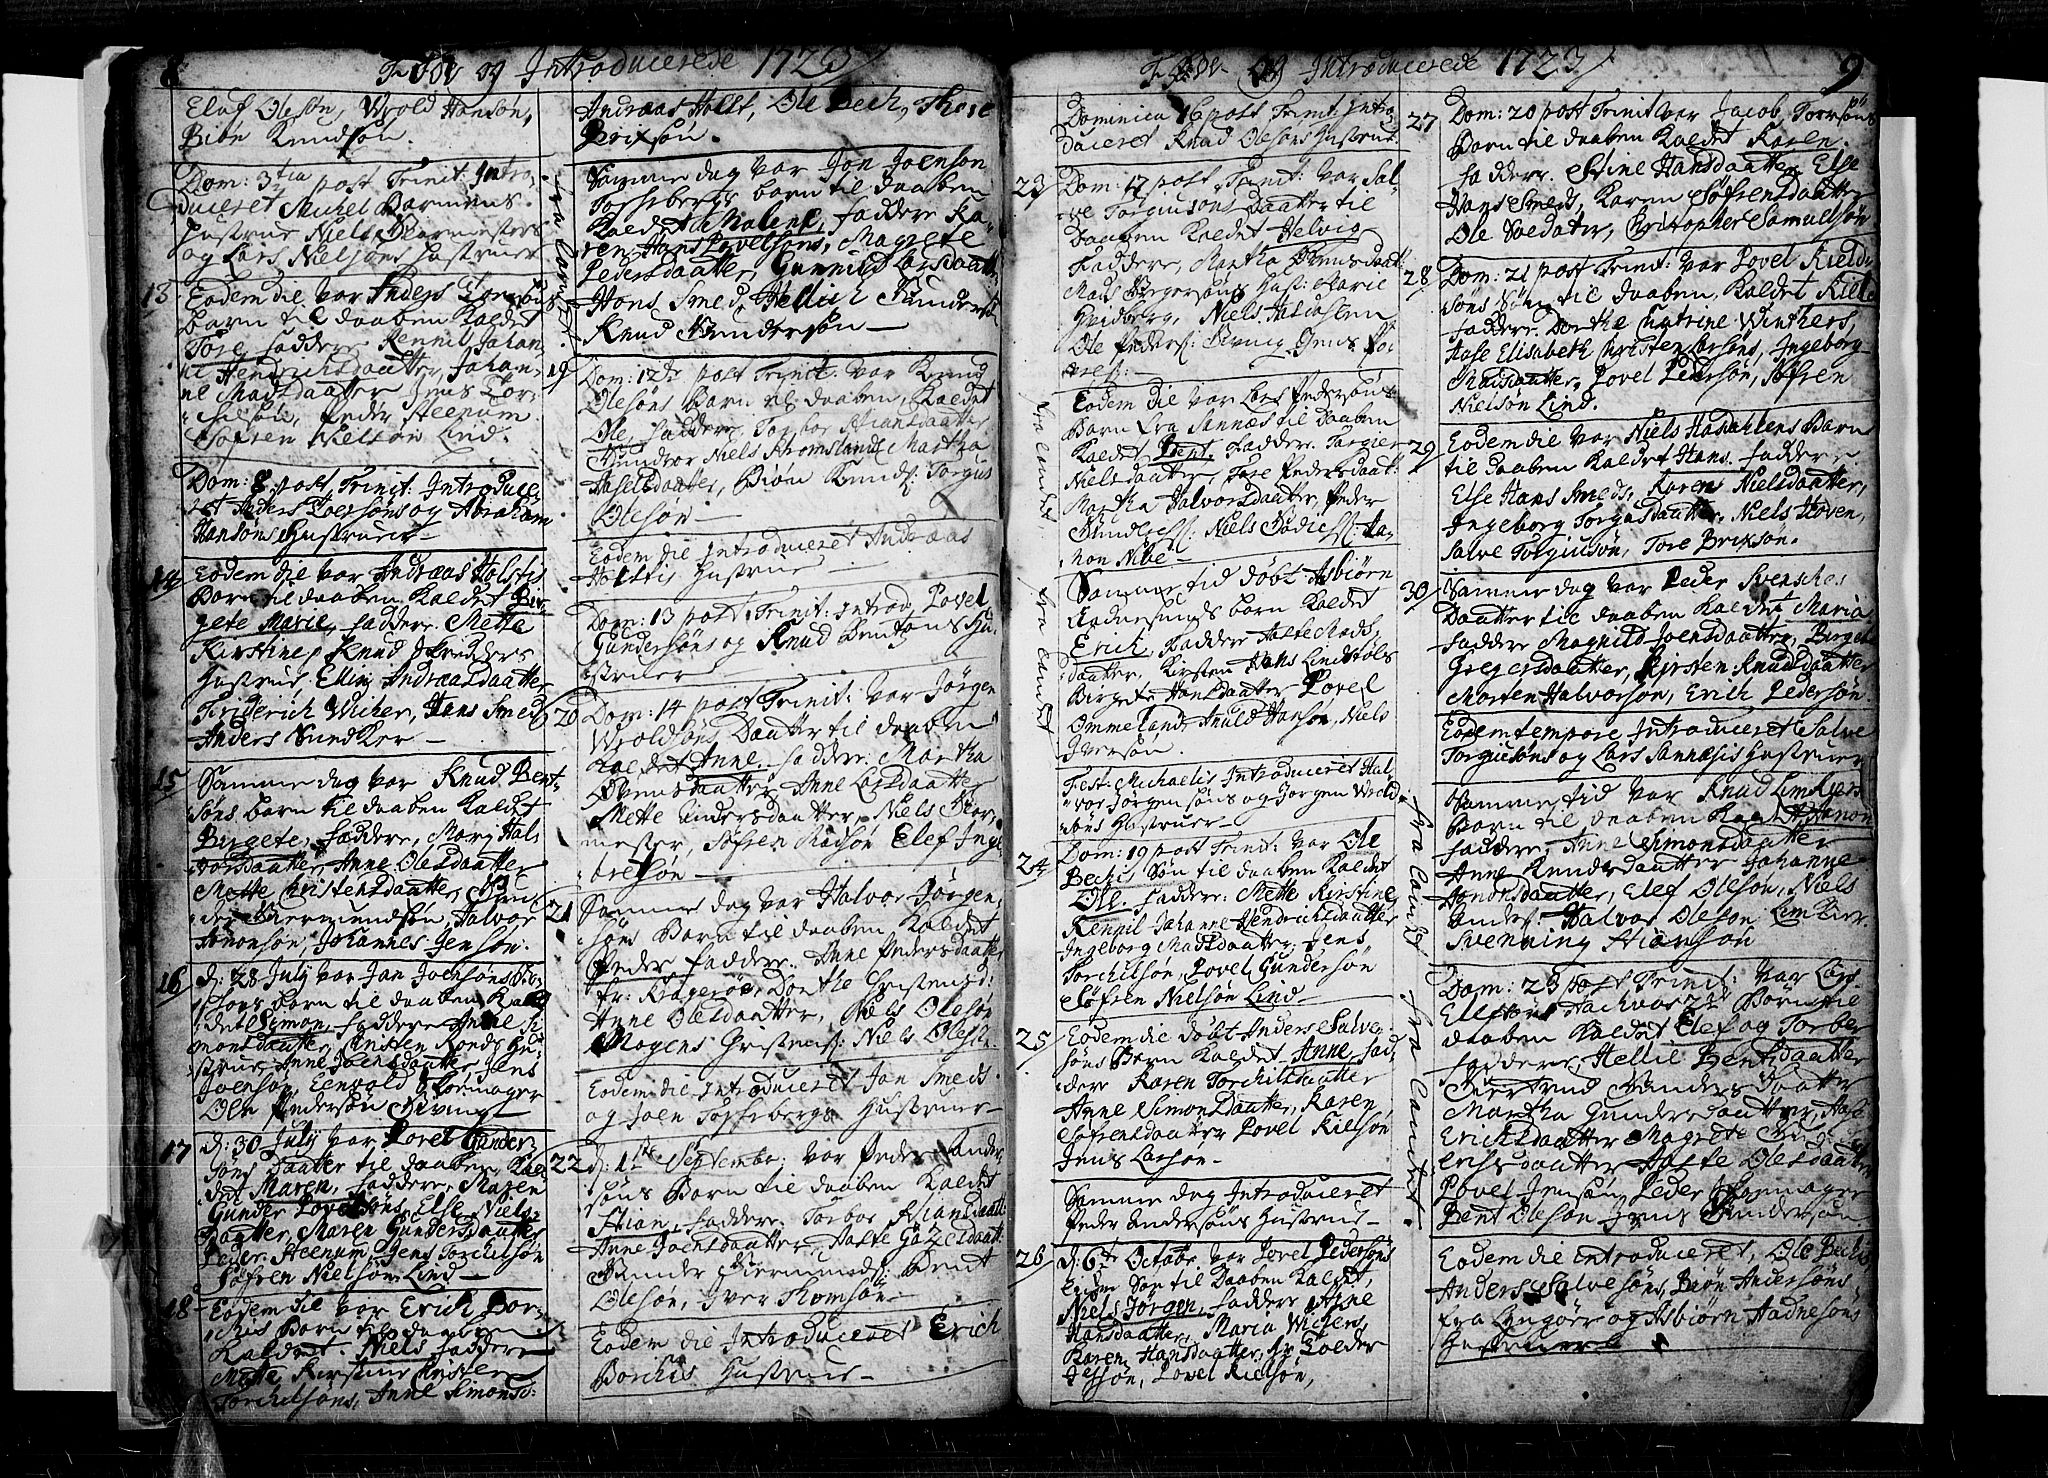 8
Føde og Introducerede 1723
Elef Olesøn, Wrold Hansøn,
Biøn Knudsøn.
Dom: 3tia post Trinit: Intro-
duceret Michel Barmens
Hustrue Niels Bormesters
og Lars Nielsøns Hustruer
13 Eodem die var Anders
Barn til daaben Kaldet
Tore faddere Kennil Johan-
ne Hendrichsdaatter, Johan-
ne Madsdaatter Jens Tor-
chilsøn, Peder Steenum
Søfren Nielsøn Lind.
Dom: 8 post Trinit: Introduce-
ret Anders Toersøns og Abraham
Hansøns Hustruer
14 Eodem die var Andræas Holstis
Barn til daaben Kaldet Bir-
gete Marie, faddere. Mette
Kirstine, Knud Skredders
Hustrue, Ellin Andræasdaatter
Friderich Wicher, Hans Smed
Anders Sundker
15 Samme dag var Knud Bent-
søns barn til daaben Kaldet
Birgete, faddere, Mari Hal-
vorsdaatter, Anne Olesdaatter
Mette Christensdaatter,
Biermundsøn, Halvor
Aanonsøn, Johannes Jensøn.
16 d: 28 July var Jan Joensøns
barn til daaben Kal-
det Simon, faddere Anne Si-
monsdaatter, Kirsten Hu-
strue, Anne Joensdaatter, Jens
Joensøn, Eenvold Formager
Ole Pedersøn Sivings
17 d: 30 July var Povel Gunder-
søns daatter til daaben Kal-
det Maren, faddere, Maren
Gunder Povelsøns, Else Niels-
daatter, Maren Gundersdaatter
Peder Steenum, Jens Torchilsøn
Søfren Nielsøn Lind
18 Eodem die var Erich Bor-
chis Barn til daaben
Kaldet. Niels faddere
Mette Kirstine Christen
Torchilsøns, Anne Simonsd:
Andræas Holst, Ole Bech, Thore
Brixsøn.
Samme dag var Jon Joensøn
Topsebergs barn til daaben
Kaldet Malene, faddere Ka-
ren Hans Povelsøns, Magrete
Pedersdaatter, Gunnild Larsdaatter
Hans Smed, Hellich Gunders:
Knud Gundersøn
fra Landet
19 Dom: 12te post Trinit: var Knud
Olesøns Barn til daaben, Kaldet
Ole, faddere, Torbor Stiansdaatter
Gundror Niels Stromslands Martha
Hafelsdaatter, Biøn Knuds: Torgus
Olesøn
Eodem die Introduceret Andræas
Holstis Hustrue
Dom: 13 post Trinit: introd, Povel
Gundersøns og Knud Bentsøns Hu-
struer
20 Dom: 14 post Trinit: var Jørgen
Wroldsøns Daatter til daaben
Kaldet Anne. faddere Martha
Evensdaatter, Anne Larsdaatter
Mette Andersdaatter, Niels Bor-
mester, Søfren Madsøn Elef Inge-
bretsøn
21 Samme dag var Halvor Jørgen-
søns Barn til daaben Kaldet
Peder faddere. Anne Pedersdaatter
fr: Kragerøe, Dorthe Cristensd:
Anne Olesdaatter, Niels Olesøn
Mogens Cristens: Niels Olesøn
Eodem die Introduceret Jan Smeds
og Joen Topsebergs Hustruer
22 d: 1ste Septembr: var Peder Ander-
søns Barn til daaben Kaldet
Stian, faddere. Torbor Stiansdaatt:
Anne Joensdaatter, Aaste Gøtzesdaatt:
Gunder Biermunds: Bent
Olesøn, Iver Thomsøn
Eodem die Introduceret Erich
Borchis Hustrue
9
Føde og Introducerede 1723
Dominica 16 post Trinit: Intro-
duceret Knud Olesøns Hustrue
23 Dom: 17 post Trinit: var Sal-
ve Torgiusøns Daatter til
Daaben Kaldet Helvig
Faddere, Martha
Mads Børgersøns Hust: Marie
Heidberg, Niels
Ole Peders: Siving Jens
Eodem die var Lars Pedersøns
Barn fra Sannæs til daaben
Kaldet Bent. Faddere. Torgier
Nielsdaatter, Tore Pedersdaatt:
Martha Halvorsdaatter, Peder
Gunders: Niels Aa-
non Nibe
fra Landet
Samme tid døbt Asbiørn
Aadnesøns barn Kaldet
Erich, Faddere Aaste Mads-
daatter, Kirsten Hans Lindstøls
Birget Hansdaatter Povel
Ommeland, Anuld Hansøn, Niels
Iversøn.
fra Landet
Fest: Michaelis Introduceret Hal-
vor Jørgensøns og Jørgen Wrold-
søns Hustruer
24 Dom: 19 post Trinit: var Ole
Bechis Søn til daaben Kaldet
Ole. faddere. Mette Kirstine
Kennil Johanne Hendrichsdaatter
Ingeborg Madsdaatter, Jens
Torchilsøn, Povel Gundersøn
Søfren Nielsøn Lind
25 Eodem die døbt Anders Salve-
søns Barn Kaldet, Anne, fad-
dere Karen Torchilsdaatter
Anne Simonsdaatter, Karen
Søfrensdaatter Povel Kielsøn
Jens Larsøn
Samme dag Introduceret
Peder Andersøns Hustrue
26 d: 6te Octobr. var Povel Pedersøns
Søn til Daaben Kaldet,
Niels Jørgen, faddere Anne
Hansdaatter, Maria Wichers,
Karen Hansdaatter, Hr Colder
Jessøn, Povel Kielsøn,
27 Dom: 20 post Trinit: var Jacob Torersøns
Barn til daaben Kaldet Karen.
faddere. Stine Hansdaatter Else
Hans Smeds, Karen Søfrensdaatter
Ole Soldater, Christopher Samuelsøn
28 Dom: 21 post Trinit: var Povel Kield-
søns Søn til daaben, Kaldet Kield
faddere. Dorthe Catrine Winthers,
Aase Elisabeth Christen Larsøns, Ingeborg
Madsdaatter, Povel Pedersøn, Søfren
Nielsøn Lind.
29 Eodem die var Niels Hasdahlens Barn
til daaben Kaldet Hans. faddere.
Else Hans Smeds, Karen Nielsdaatter,
Ingeborg Torgusdaatter. Niels Hoven,
Salve Torgiusøn, Tore Brixsøn.
30 Samme dag var Peder Svensches
Daatter til daaben Kaldet Maria
faddere Magnild Joensdaatter, Birget
Gregersdaatter, Kirsten Knudsdaatter
Morten Halvorsøn, Erich Pedersøn
Eodem tempore Introduceret Salve
Torgiusøns og Lars Sannæsis Hustruer
fra Landet
Samme tid var Knud Limkiers
Barn til daaben Kaldet Aanon
faddere. Anne Simonsdaatter
Anne Knudsdaatter Johanne
Aanonsdaatter, Elef Olesøn, Niels
Anders: Halvor Olesøn Limkier
Svenning Stiansøn
fra Landet
Dom: 23 post Trinit: var Lars
Elefsøns Børn til
daaben Kaldet Elef og Torber
faddere, Hellie Bentsdaatter
Giertrud Gundersdaatter
Martha Gundersdaatter, Aase
Erichsdaatter Magrete
Erichsdaatter Aaste Olesdaatter
Povel Jensøn, Peder Formager
Bent Olesøn Jens Gundersøn
Eodem die introduceret, Ole Bechis
Anders Salvesøns, Biøn Andersøns
fra Lyngøer og Asbiørn Aadnesøns
Hustruer